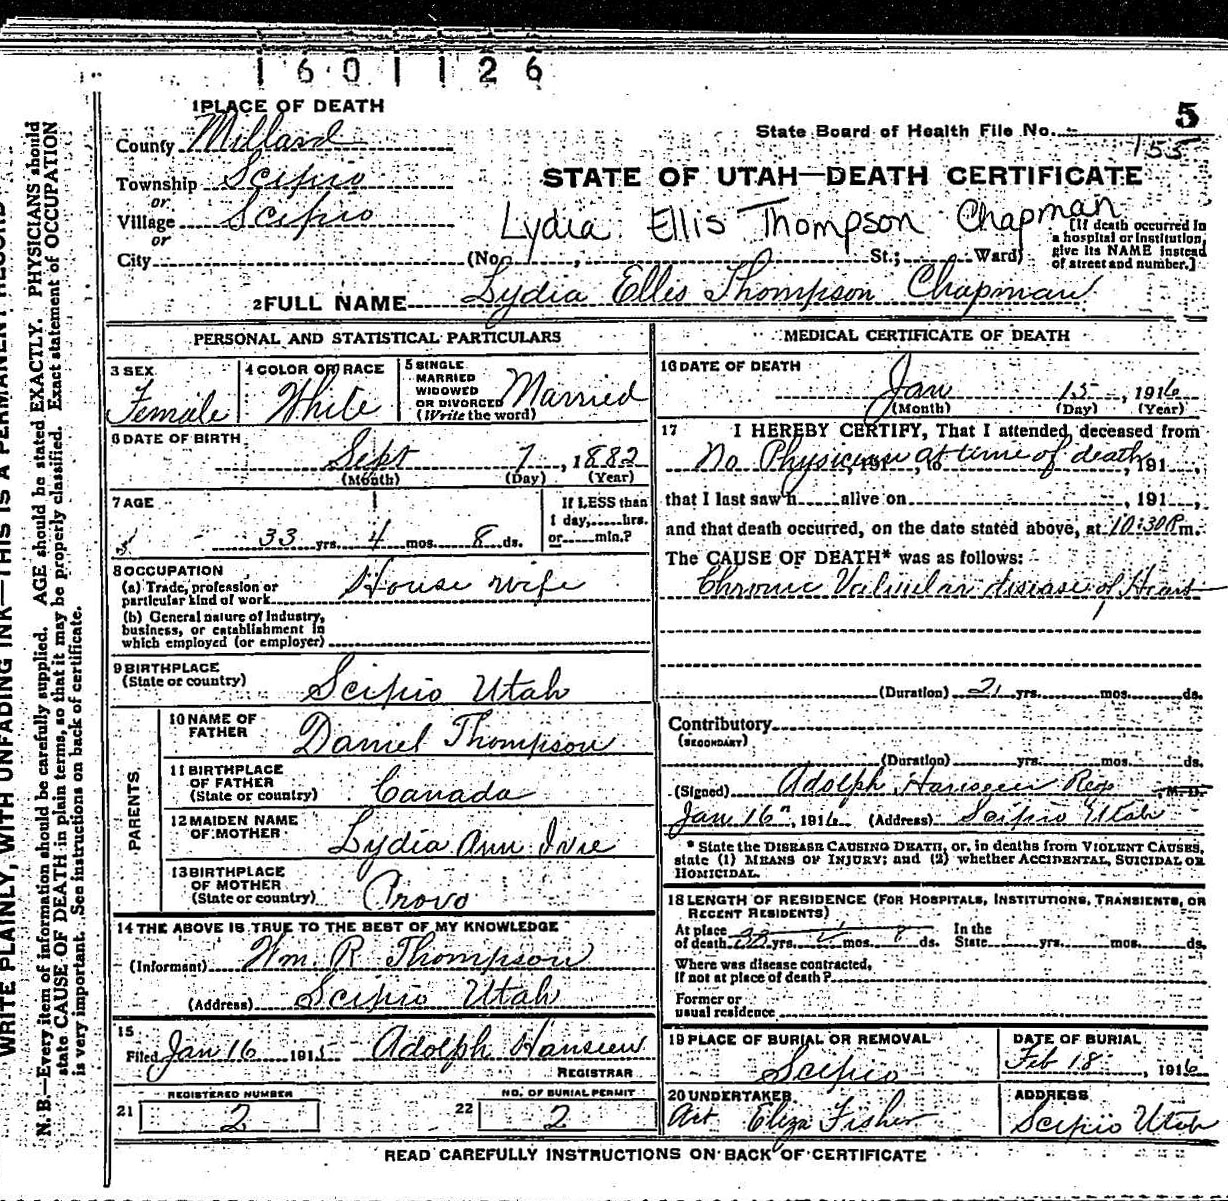 1601126
1 PLACE OF DEATH
County Millard
Township Scipio
or
Village Scipio
or
City
5
State Board of Health File No.
155
STATE OF UTAH—DEATH CERTIFICATE
Lydia Ellis Thompson Chapman
(No. , St.; Ward)
[If death occurred in
a hospital or institution,
give its NAME instead
of street and number.]
2 FULL NAME Lydia Ellis Thompson Chapman
PERSONAL AND STATISTICAL PARTICULARS
3 SEX
Female
4 COLOR OR RACE
White
5 SINGLE
MARRIED
WIDOWED
OR DIVORCED
(Write the word)
Married
6 DATE OF BIRTH
Sept 7, 1882
(Month) (Day) (Year)
7 AGE
33 yrs. 4 mos. 8 ds.
If LESS than
1 day, hrs.
or min.?
8 OCCUPATION
(a) Trade, profession or
particular kind of work House wife
(b) General nature of Industry,
business, or establishment in
which employed (or employer)
9 BIRTHPLACE
(State or country)
Scipio Utah
PARENTS
10 NAME OF
FATHER
Daniel Thompson
11 BIRTHPLACE
OF FATHER
(State or country)
Canada
12 MAIDEN NAME
OF MOTHER
Lydia Ann Ivie
13 BIRTHPLACE
OF MOTHER
(State or country)
Provo
14 THE ABOVE IS TRUE TO THE BEST OF MY KNOWLEDGE
(Informant) Wm. R Thompson
(Address) Scipio Utah
15
Filed Jan 16 1915 Adolph Hansen
REGISTRAR
REGISTERED NUMBER
21 2
NO. OF BURIAL PERMIT
22 2
MEDICAL CERTIFICATE OF DEATH
16 DATE OF DEATH
Jan 15, 1916
(Month) (Day) (Year)
17 I HEREBY CERTIFY, That I attended deceased from
No Physician at time of death
, 191 , to , 191 ,
that I last saw h alive on , 191 ,
and that death occurred, on the date stated above, at 10:30 P m.
The CAUSE OF DEATH* was as follows:
Chronic Valvular disease of Heart
(Duration) 21 yrs. mos. ds.
Contributory
(SECONDARY)
(Duration) yrs. mos. ds.
(Signed) Adolph Hansen Reg M.D.
Jan 16", 1916 (Address) Scipio Utah
* State the DISEASE CAUSING DEATH, or, in deaths from VIOLENT CAUSES,
state (1) MEANS OF INJURY; and (2) whether ACCIDENTAL, SUICIDAL OR
HOMICIDAL.
18 LENGTH OF RESIDENCE (FOR HOSPITALS, INSTITUTIONS, TRANSIENTS, OR
RECENT RESIDENTS)
At place
of death 33 yrs. 4 mos. 8 ds.
In the
State yrs. mos. ds.
Where was disease contracted,
If not at place of death?
Former or
usual residence
19 PLACE OF BURIAL OR REMOVAL
Scipio
DATE OF BURIAL
Feb 18, 1916
20 UNDERTAKER
Art Eliza Fisher
ADDRESS
Scipio Utah
READ CAREFULLY INSTRUCTIONS ON BACK OF CERTIFICATE
WRITE PLAINLY, WITH UNFADING INK—THIS IS A PERMANENT RECORD
N. B.—Every item of information should be carefully supplied. AGE should be stated EXACTLY. PHYSICIANS should
state CAUSE OF DEATH in plain terms, so that it may be properly classified. Exact statement of OCCUPATION
is very important. See instructions on back of certificate.